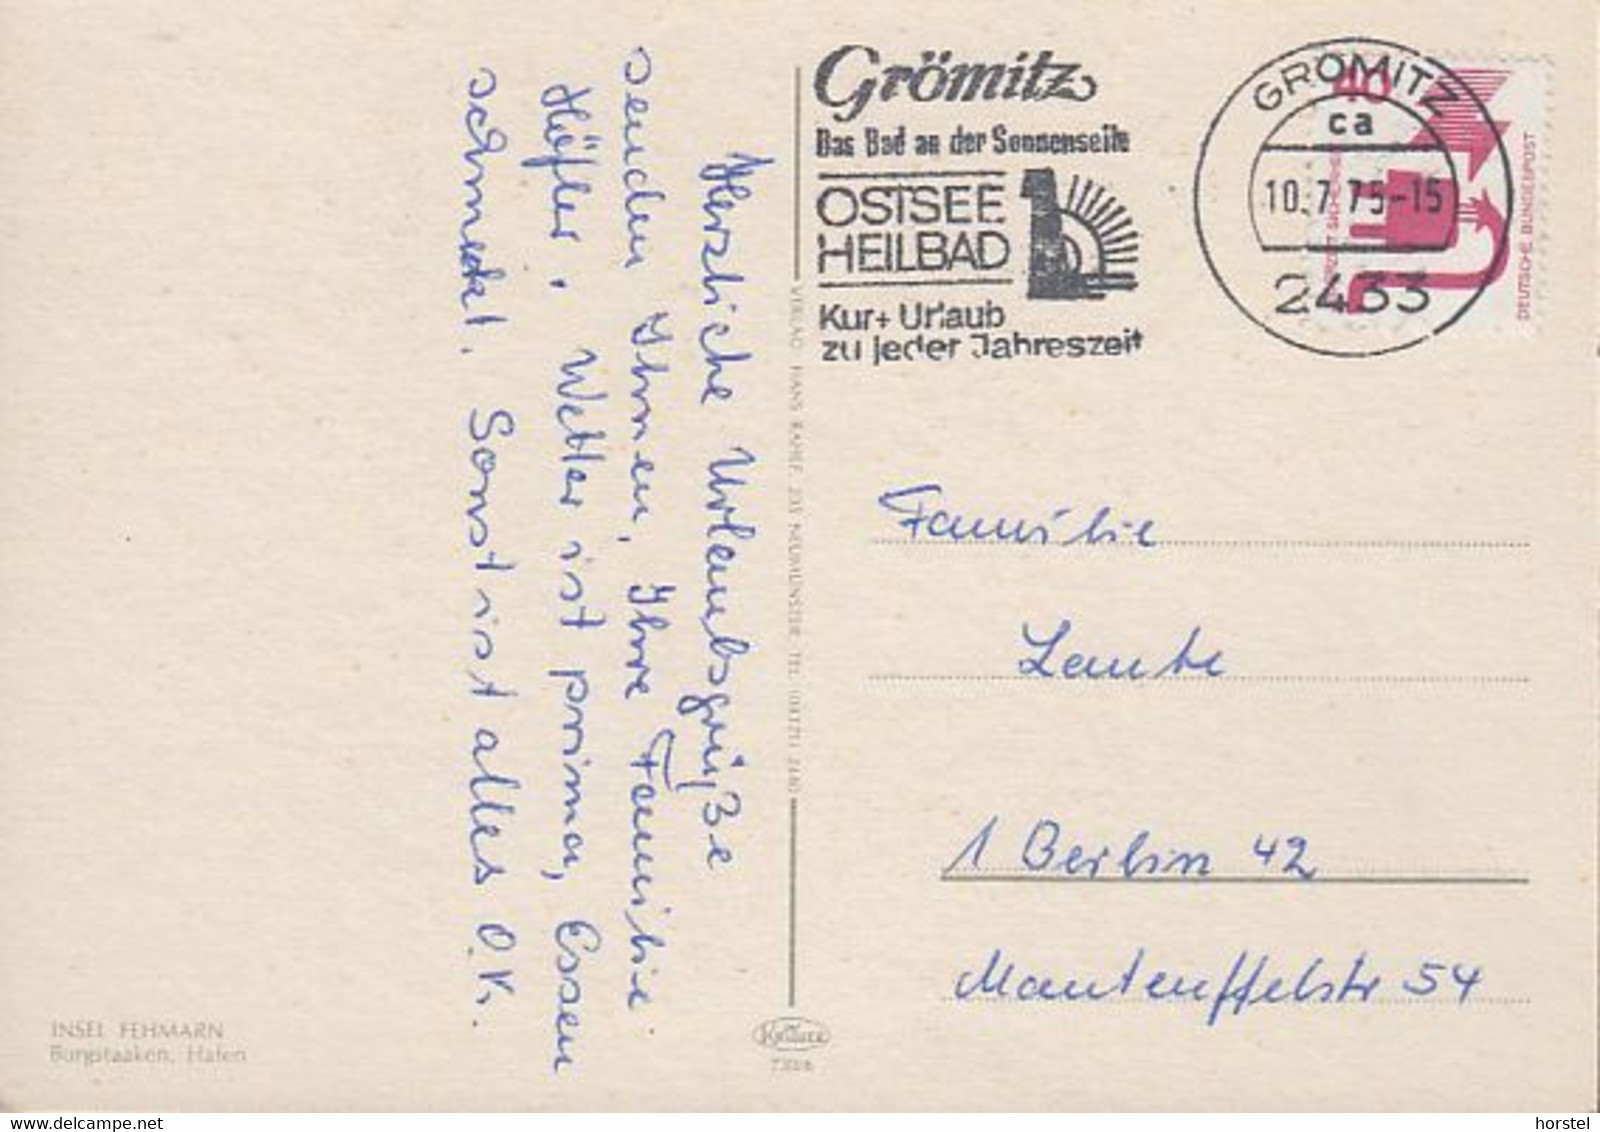 Herzliche Urlaubsgrüße
senden Ihnen, Ihre Familie
Höfler. Wetter ist prima, Essen
schmeckt. Sonst ist alles O.K.
INSEL FEHMARN
Burgstaaken, Hafen
VERLAG HANS RAHE 235 NEUMÜNSTER TEL.
Grömitz
Das Bad an der Sonnenseite
OSTSEE
HEILBAD
Kur+ Urlaub
zu jeder Jahreszeit
GRÖMITZ
ca
10.7.75-15
2433
40
DEUTSCHE BUNDESPOST
Familie
Laute
1 Berlin 42
Manteuffelstr 54
delcampe.net
horstel